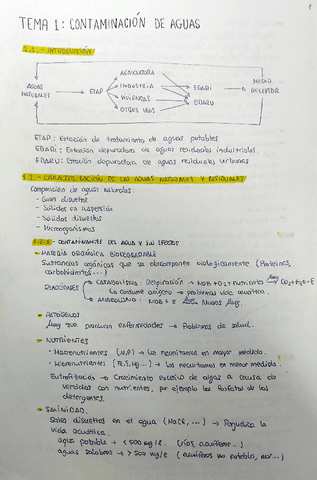 1
TEMA 1: CONTAMINACIÓN DE AGUAS
1.1.- INTRODUCCIÓN
AGUAS NATURALES
ETAP
AGRICULTURA
INDUSTRIA
VIVIENDAS
OTROS USOS
EDARI
EDARU
MEDIO RECEPTOR
ETAP: Estación de tratamiento de aguas potables
EDARI: Estación depuradora de aguas residuales industriales.
EDARU: Estación depuradora de aguas residuales urbanas
1.2.- CARACTERIZACIÓN DE LAS AGUAS NATURALES Y RESIDUALES
Composición de aguas naturales:
- Gases disueltos
- Sólidos en suspensión
- Sólidos disueltos
- Microorganismos
1.2.1.- CONTAMINANTES DEL AGUA Y SUS EFECTOS
MATERIA ORGÁNICA BIODEGRADABLE
Sustancias orgánicas que se descomponen biológicamente (Proteínas,
carbohidratos...)
REACCIONES
CATABOLISMO: Respiración → MOB + O2 + nutriente
CO2 + H2O + E
Se consume oxígeno → problemas vida acuática.
ANABOLISMO: MOB + E
Nuevos
PATÓGENOS
que producen enfermedades → Problemas de salud.
NUTRIENTES
- Macronutrientes (N,P) → Los necesitamos en mayor medida.
- Micronutrientes (Fe,S,Mg...) → Los necesitamos en menor medida.
Eutrofización → Crecimiento excesivo de algas a causa de
vertidos con nutrientes, por ejemplo los fosfatos de los
detergentes.
SALINIDAD
Sales disueltas en el agua (NaCl, ...) → Perjudica la
vida acuática.
agua potable → < 500 mg/l. (ríos, acuíferos...)
aguas salobres → > 500 mg/l (acuíferos no potables, mar...)